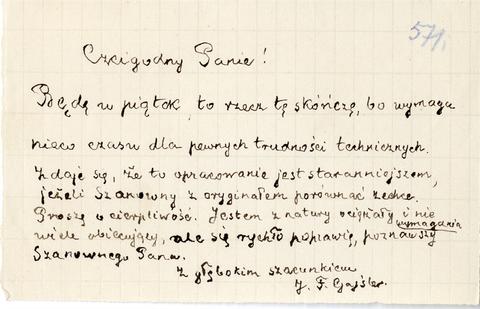 571.
Czcigodny Panie!
Będę w piątok, to rzecz tę skończę, bo wymaga
nieco czasu dla pewnych trudności technicznych.
Zdaje się, że to opracowanie jest staranniejszem,
jeżeli Szanowny z oryginałem porównać zechce.
Proszę o cierpliwość. Jestem z natury ociężały i nie
wiele obiecujący, ale się rychło poprawię, poznawszy wymagania
Szanownego Pana.
Z głębokim szacunkiem
J. F. Gajsler.